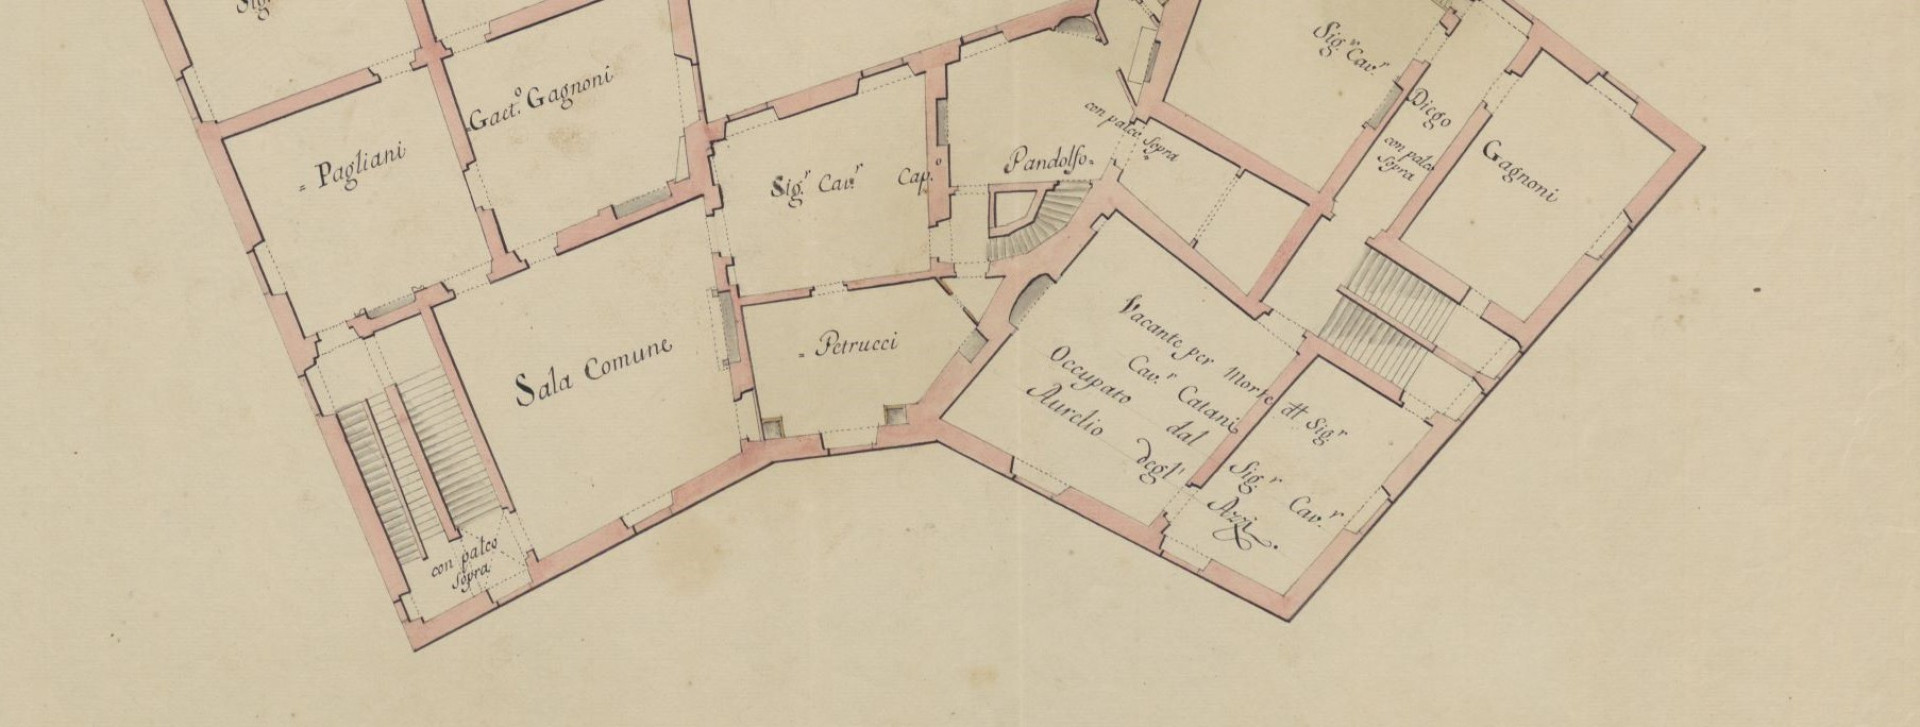 Sig.
= Pagliani
Gaet.º Gagnoni
Sig.r Cav.r Cap.º
Pandolfo =
con palco sopra =
= Petrucci
Sala Comune
con palco
sopra
Sig.r Cav.r
Diego
con palco
sopra
Gagnoni
Vacante per Morte dtt Sig.r
Cav.r Catani
Occupato dal Sig.r Cav.r
Aurelio degl' Azzi